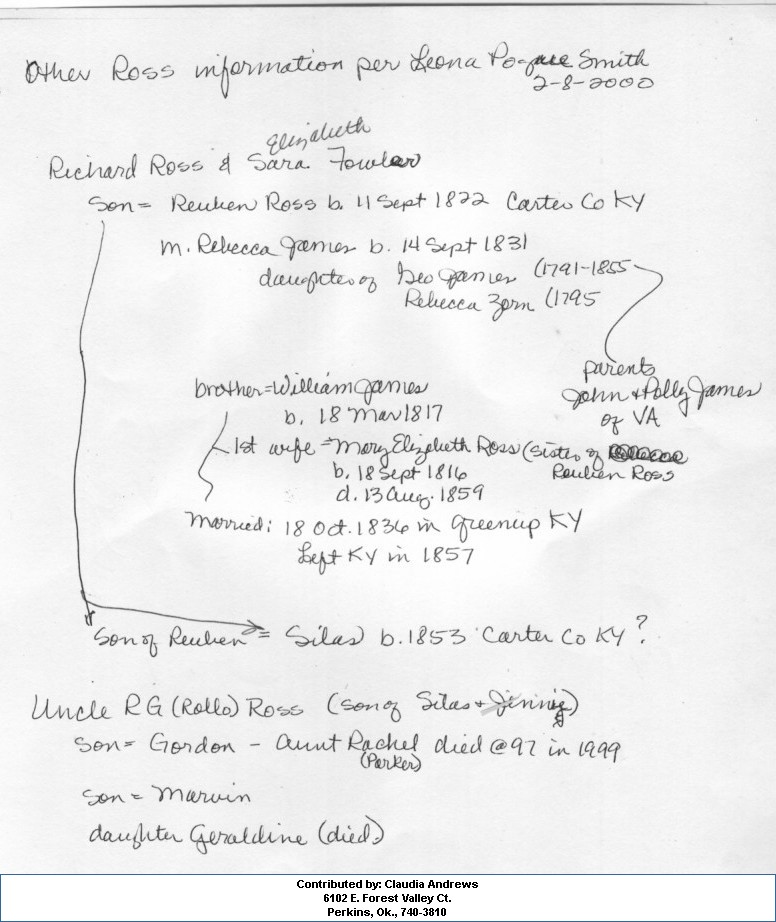 Other Ross information per Leona Pogue Smith
2-8-2000
Elizabeth
Richard Ross & Sara Fowler
Son = Reuben Ross b. 11 Sept 1822 Carter Co KY
m. Rebecca James b. 14 Sept 1831
daughter of Geo James (1791-1855
Rebecca Zorn (1795
parents
John & Polly James
of VA
brother = William James
b. 18 Mar 1817
1st wife = Mary Elizabeth Ross (sister of
Reuben Ross
b. 18 Sept 1816
d. 13 Aug. 1859
Married: 18 Oct. 1836 in Greenup KY
Left KY in 1857
Son of Reuben = Silas b. 1853 Carter Co KY ?
Uncle RG (Rollo) Ross (son of Silas & Jinnie)
Son = Gordon - Aunt Rachel died @ 97 in 1999
(Parker)
son = Marvin
daughter Geraldine (died)
Contributed by: Claudia Andrews
6102 E. Forest Valley Ct.
Perkins, Ok., 740-3810